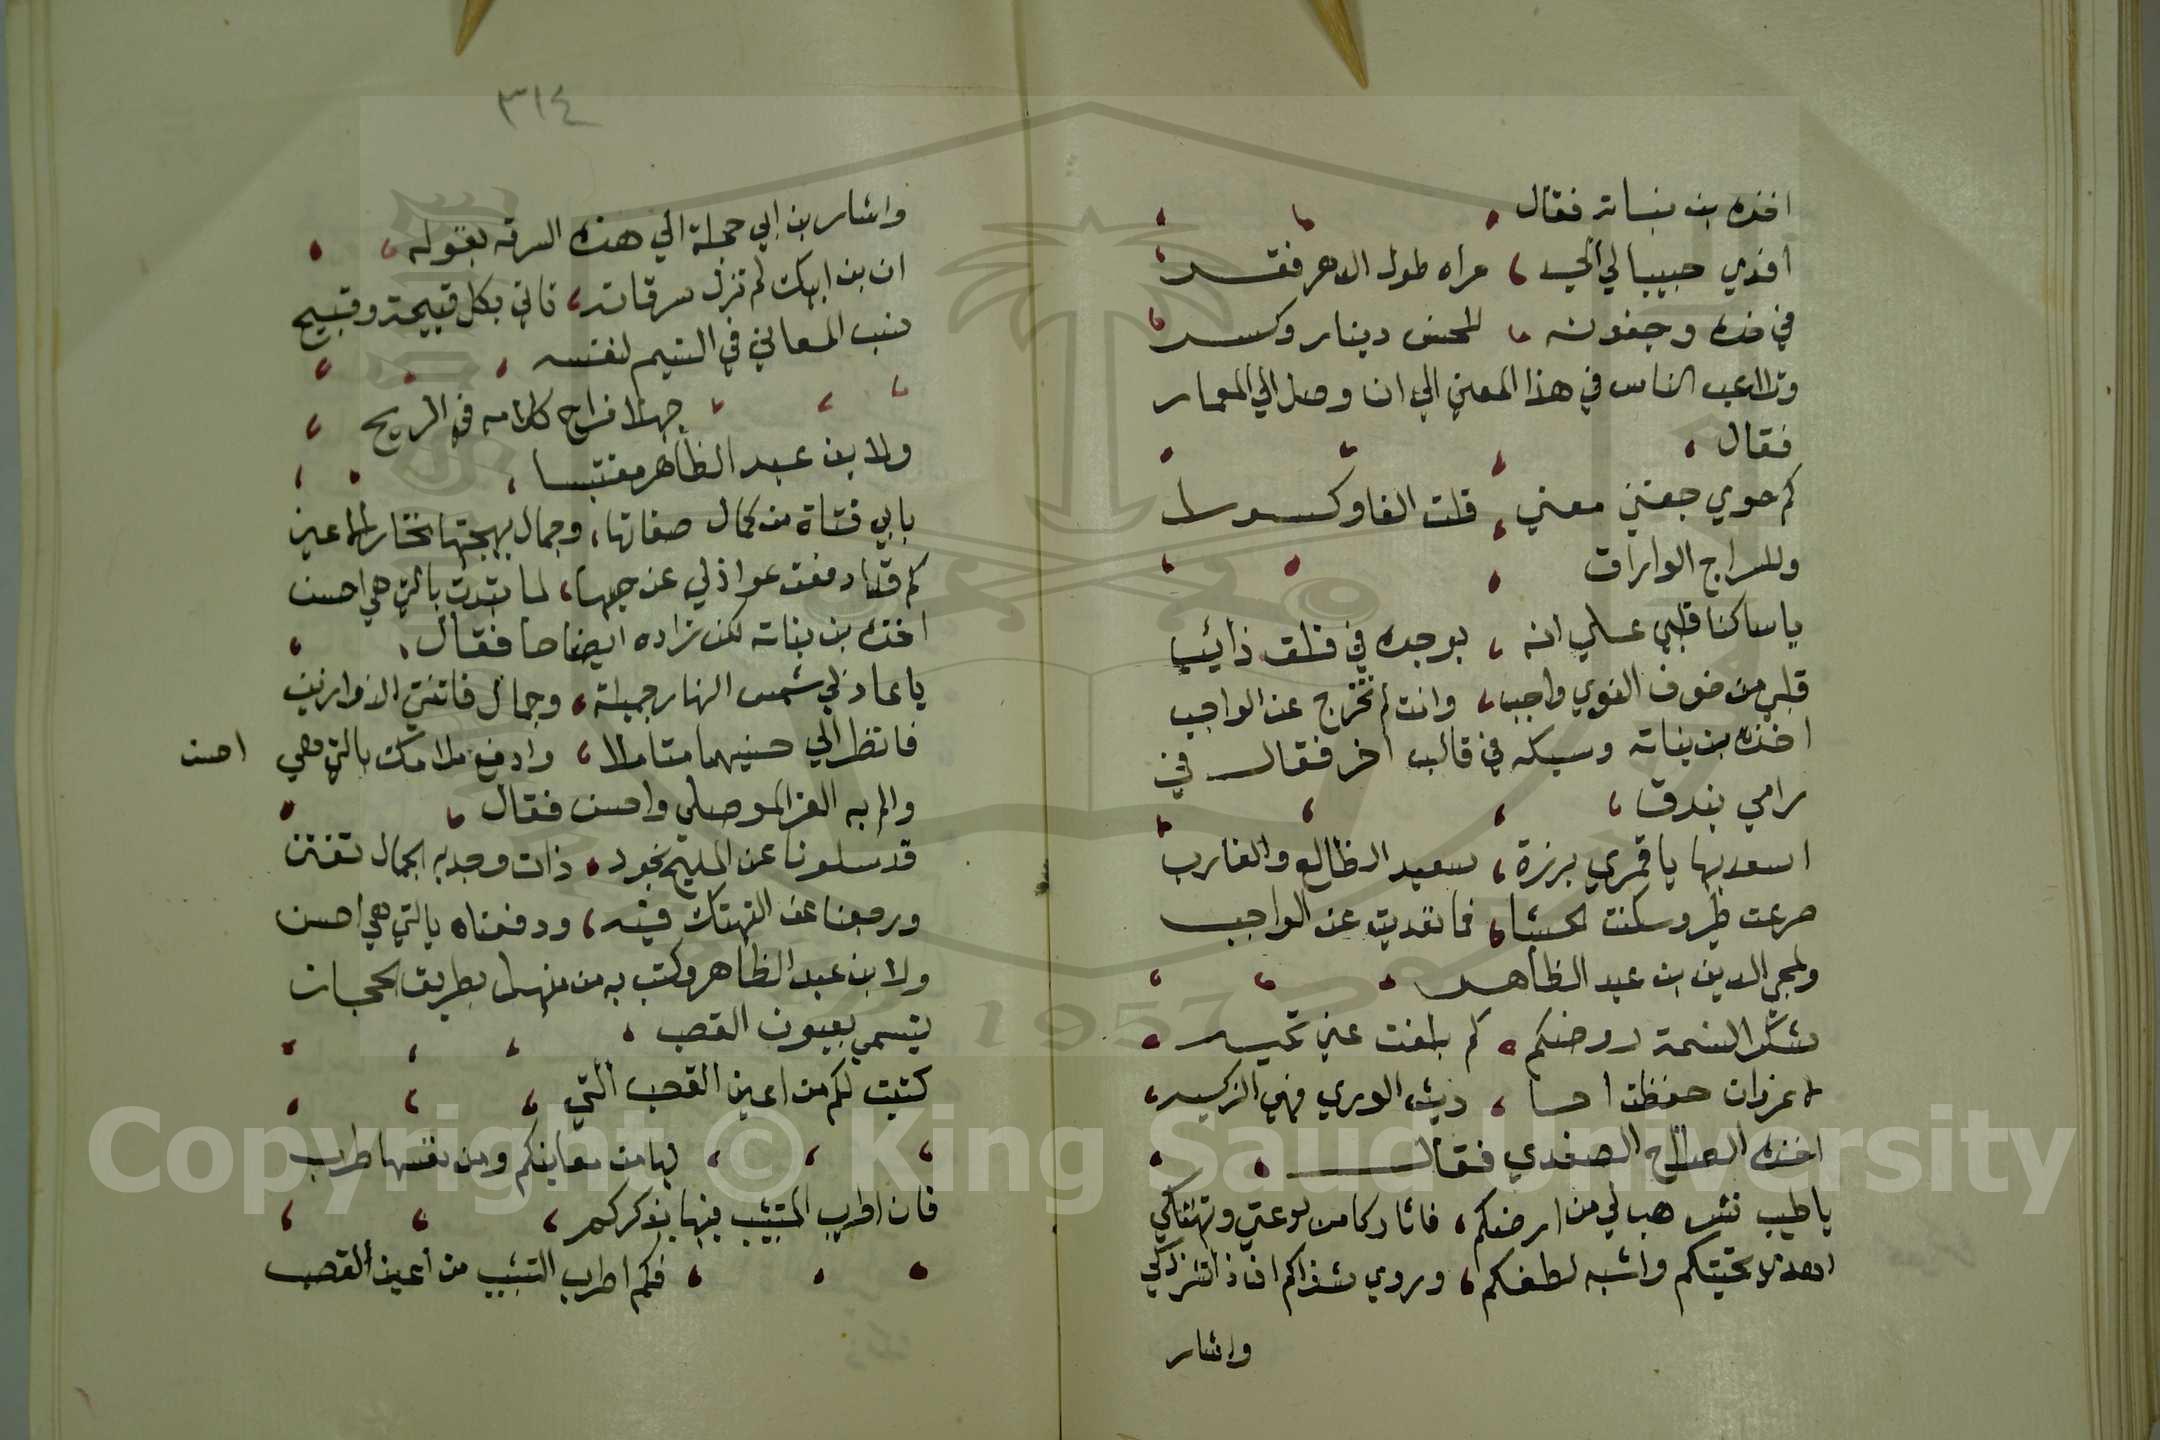 اخذه ابن نباته فقال
افدي حبيبا لي الحيد مراه طول الدهر فقد
في خده وجفونه للحسن دينار وكسر
وتلاعب الناس في هذا المعني الي ان وصل الي المعمار
فقال
كم حوي جفني معني قلت الفا وكسور
وللسراج الوراق
يا ساكنا قلبي علي انه بوجده في قلق ذائب
قلبي من خوف النوي واجب وانت لم تخرج عن الواجب
اخذه بن نباته وسبكه في قالب اخر فقال في
رامي بندق
اسعد بها يا قمري برزة سعيد الطالع والغارب
صرعت طيرا وسكنت الحشا فما تعديت عن الواجب
ولمحي الدين بن عبد الظاهر
شكر النسمة روضكم كم بلغت عني تحيه
لا غروان حفظت احا ديث الوري فهي الزكيه
اخذه الصلاح الصفدي فقال
يا طيب نشر هب لي من ارضكم فاثار كامن لوعتي وتهتكي
اهدي تحيتكم واشبه لطفكم وروي شذاكم ان ذا نشر زكي
واشار
٣١٤
واشار بن ابي حجلة الي هذه السرقه بقوله
ان بن ايبك لم تزل سرقاته تاتي بكل قبيحة وقبيح
نسب المعاني في النسيم لنفسه
جهلا فراح كلامه في الريح
ولا بن عبد الظاهر مقتبسا
بابي فتاة من كمال صفاتها وجمال بهجتها تحار الاعين
كم قد دفعت عواذلي عن حبها لما تبدت بالتي هي احسن
اخذه بن نباته لكن زاده ايضاحا فقال
يا عاذلي شمس النهار جميلة وجمال فاتنتي الذ وازين
فانظر الي حسنيهما متاملا وادفع ملامك بالتي هي احسن
والم به العز الموصلي واحسن فقال
قد سلونا عن المليح بخود ذات وجه به الجمال تفنن
ورجعنا عن التهتك فيه ودفعناه بالتي هي احسن
ولا بن عبد الظاهر وكتب به من منهل بطريق الحجاز
يسمي بعيون القصب
كتبت لكم من اعين القصب التي
لها من معاينكم ومن نفسها طرب
فان اطرب التشبيب فيها بذكركم
فكم اطرب التشبيب من اعين القصب